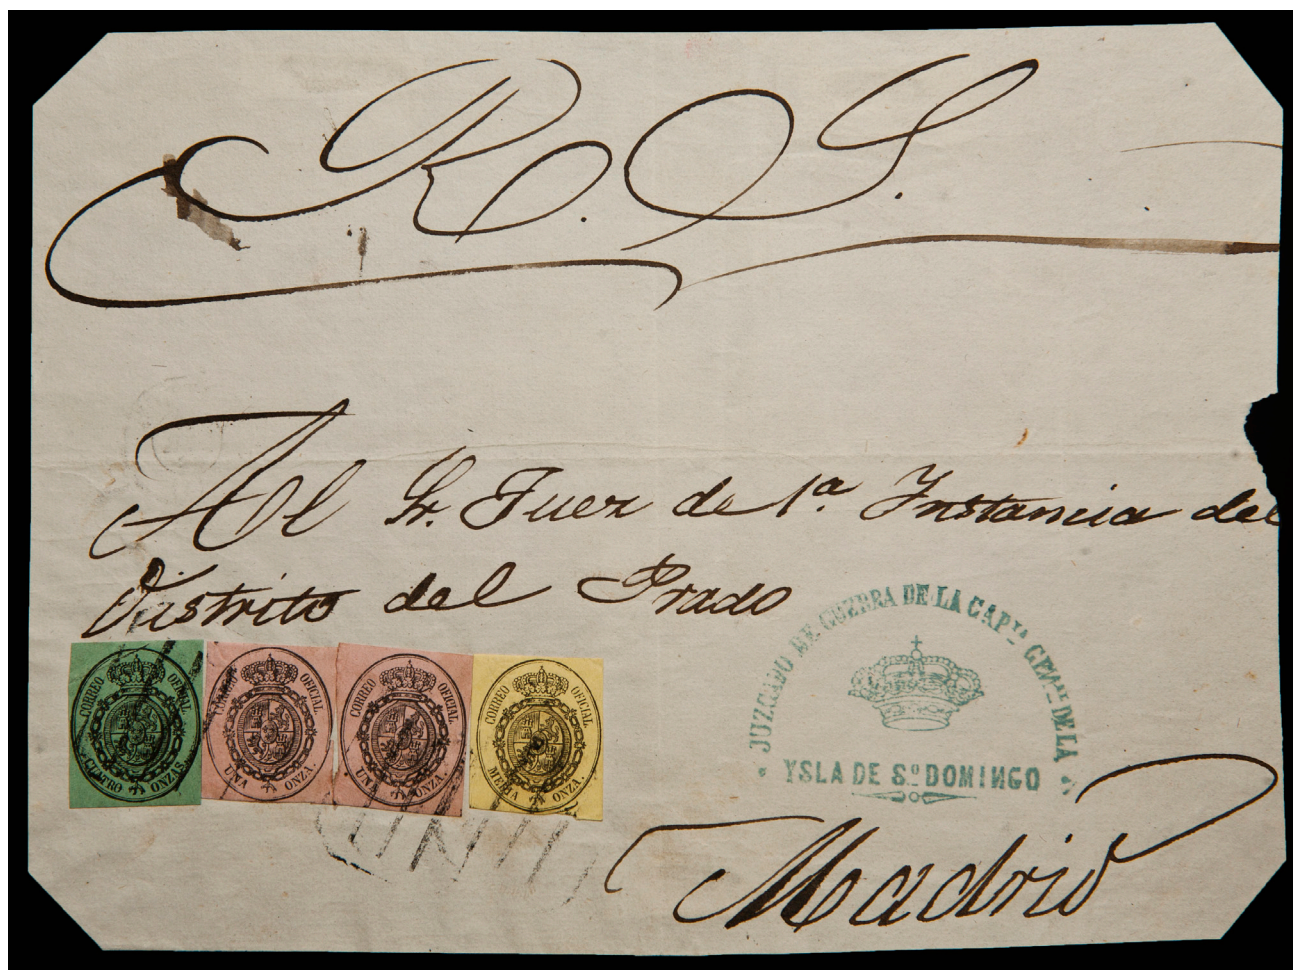 R. S.
Al Sr. Juez de 1ª. Instancia del
Distrito del Prado
CORREO OFICIAL
CUATRO ONZAS.
CORREO OFICIAL
UNA ONZA.
CORREO OFICIAL
UNA ONZA.
CORREO OFICIAL
MEDIA ONZA.
JUZGADO DE GUERRA DE LA CAPIª GENAL DE LA
YSLA DE Sº DOMINGO
Madrid